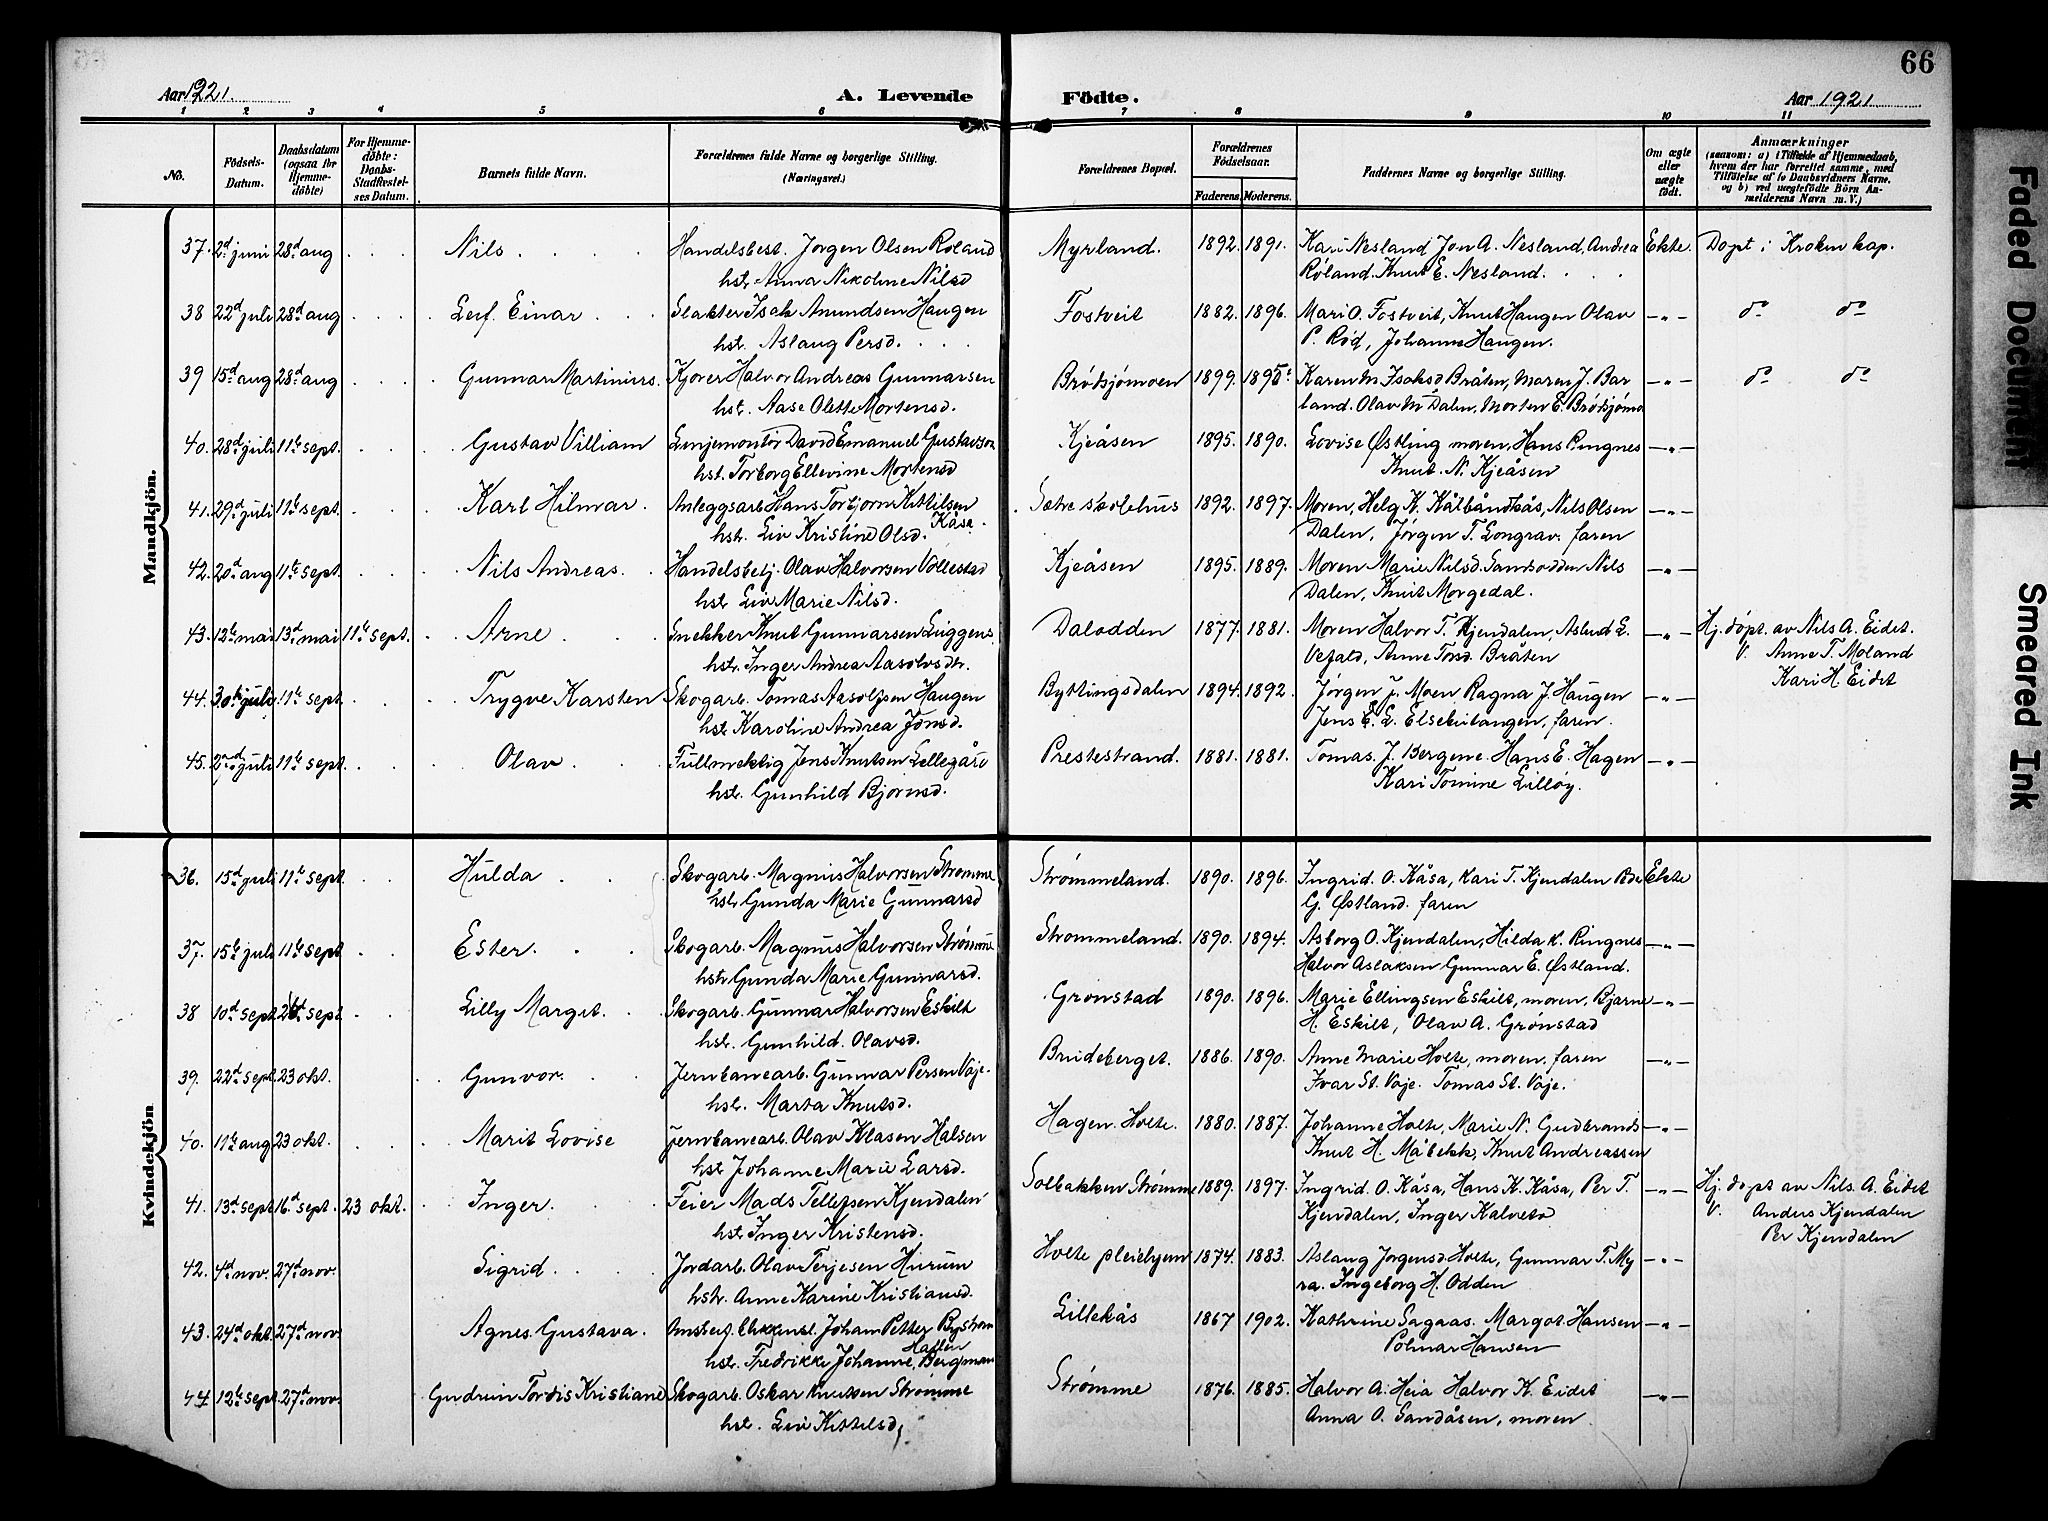 66
Aar 1921. A. Levende Fødte. Aar 1921
1 2 3 4 5 6 7 8 9 10 11
No. Födsels-Datum. Daabsdatum (ogsaa for Hjemmedöbte) For Hjemmedöbte: Daabs-Stadfæstelses Datum. Barnets fulde Navn. Forældrenes fulde Navne og borgerlige Stilling. (Næringsvei.) Forældrenes Bopæl. Forældrenes Födselsaar. Faderens. Moderens. Faddernes Navne og borgerlige Stilling. Om ægte eller uægte födt. Anmærkninger (saasom: a) i Tilfælde af Hjemmedaab, hvem der har forrettet samme, med Tilföielse af to Daabsvidners Navne, og b) ved uægtefödte Börn Anmelderens Navn m. V.)
Mandkjön.
37. 2d juni 28d aug Nils Handelsbest. Jørgen Olsen Røland Myrland. 1892. 1891. Kari Nesland Jon A. Nesland, Andrea Ekte. Døpt i Kroken kap.
hst. Anna Nikoline Nilsd Røland. Knut E. Nesland.
38 22d juli 28d aug Leif Einar Slakter Isak Amundsen Haugen Fostveit 1882. 1896. Mari O. Fostveit, Knut Haugen Olav -"- do do
hst. Aslaug Persd. P. Rød, Johanne Haugen.
39 15d aug 28d aug Gunnar Martinius. Kjører Halvor Andreas Gunnarsen Brødsjømoen 1899. 1895. Karen M. Isaksd Bråten, Maren J. Bar -"- do do
hst. Aase Olette Mortensd. land. Olav M Dalen, Morten E. Brødsjømo
40. 28d juli 11te sept. Gustav Villiam Linjemontør David Emanuel Gustavson Kjeåsen 1895. 1890. Lovise Østling moren, Hans Ringnes -"-
hst. Torborg Ellevine Mortensd Knut. N. Kjeåsen
41. 29d juli 11te sept. Karl Hilmar Anleggsarb Hans Torbjørn Kittilsen Kåsa. Sætre skolehus 1892. 1897. Moren, Helg K. Kålbåndkås, Nils Olsen -"-
hst. Liv Kristine Olsd. Dalen, Jørgen T. Longrav. faren
42. 20d aug 11te sept. Nils Andreas. Handelsbetj. Olav Halvorsen Vollestad Kjeåsen 1895. 1889. Moren Marie Nilsd. Sandsodden Nils -"-
hst Liv Marie Nilsd. Dalen, Knut Morgedal.
43. 12te mai 13d mai 11te sept. Arne Snekker Knut Gunnarsen Liggens. Dalodden 1877. 1881. Moren Halvor T. Kjendalen, Aslaug L. -"- Hj. døpt. av Nils A. Eidet.
hst. Inger Andrea Aasolvsdtr. Vefald, Anne Torsd. Bråten V. Anne T. Moland
Kari H. Eidet
44. 30te juli 11te sept. Trygve Karsten Skogarb. Tomas Aasolfsen Haugen Byttingsdalen 1894. 1892. Jørgen J. Moen Ragna J. Haugen -"-
hst Karoline Andrea Jonsd. Jens E. L. Elseketangen, faren.
45. 2nd juli 11te sept. Olav Fullmektig Jens Knutsen Lillegård Prestestrand. 1881. 1881. Tomas. J. Bergene. Hans E. Hagen -"-
hst. Gunhild Bjørnsd. Kari Tomine Lilløy.
Kvindekjön
36. 15d juli 11te sept Hulda Skogarb. Magnus Halvorsen Strømme Strømmeland. 1890. 1896. Ingrid. O. Kåsa, Kari T. Kjendalen Ekte
hst. Gunda Marie Gunnarsd G. Østland. faren
37. 15te juli 11te sept Ester. Skogarb. Magnus Halvorsen Strømme Strømmeland. 1890. 1894. Asborg O. Kjendalen, Hilda K. Ringnes -"-
hst Gunda Marie Gunnarsd. Halvor Aslaksen Gunnar E. Østland.
38 10d sept. sept. Lilly Margit. Skogarb. Gunnar Halvorsen Eskilt Grønstad 1890. 1896. Marie Ellingsen Eskilt, moren, Bjarne -"-
hst. Gunhild. Olavsd. H. Eskilt, Olav A. Grønstad
39. 22d sept. 23 okt. Gunvor. Jernbanearb. Gunnar Persen Voje. Buideberget. 1886. 1890. Anne Marie Holte, moren, faren -"-
hst. Marta Knutsd. Ivar St. Voje. Tomas St. Voje.
40. 11te aug 23 okt. Marit Lovise Jernbanearb. Olav Klasen Halsen Hagen. Holte. 1880. 1887. Johanne Holte, Marie N. Gudbrands -"-
hst Johanne Marie Larsd. Knut H. Måbekk, Knut Andreassen
41. 13d sept 16d sept. 23 okt. Inger. Feier Mads Tellefsen Kjendalen Solbakken Strømme 1889. 1897. Ingrid. O. Kåsa, Hans K. Kåsa, Per T. -"- Hj. døpt av Nils. A. Eidet
hst Inger Kristensd. Kjendalen, Inger Kalvets V. Anders Kjendalen
Per Kjendalen
42. 4d nov. 27d nov. Sigrid Jordarb. Olav Terjesen Hurum Holte pleiehjem 1874. 1883. Aslaug Jørgensd Holte, Gunnar T. My -"-
hst. Anne Karine Kristiansd. ra. Ingeborg H. Odden
43. 24d okt. 27d nov. Agnes. Gustava. Johan Petter Bystrøm Lillekås 1867 1902. Kathrine Sagaas. Margot Hansen -"-
hst. Fredrikke Johanne Hallin Bergman Polmar Hansen
44 12te sept. 27d nov. Gudrun Tordis Kristiane Skogarb. Oskar Knutsen Strømme Strømme 1876. 1885. Halvor A. Heia Halvor K. Eidet -"-
hst. Liv Kittelsd. Anna O. Sandåsen, moren.
Faded Document
Smeared Ink